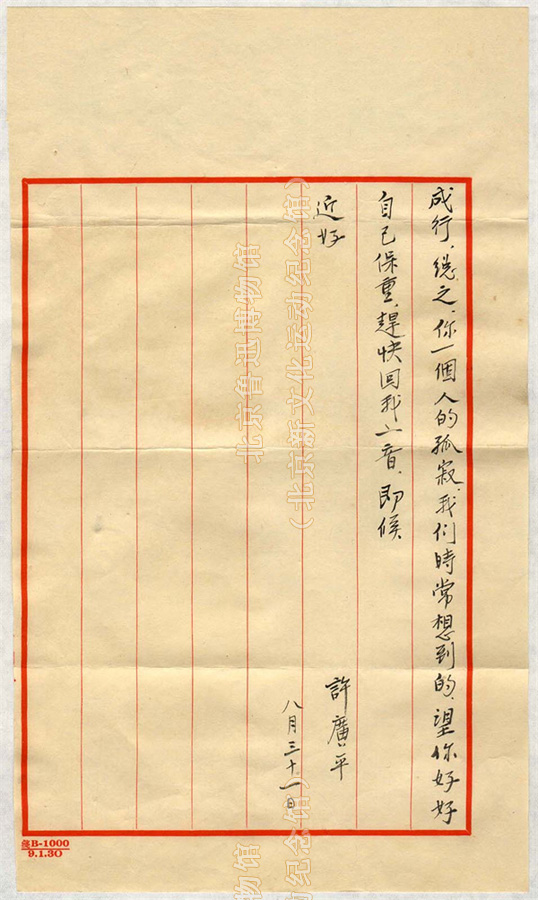 成行,总之,你一個人的孤寂,我们時常想到的,望你好好
自己保重,趕快回我一音,即候
近好
許廣平
八月三十一日
北京鲁迅博物馆
(北京新文化运动纪念馆)
B-1000
9.1.30